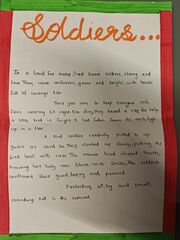 Soldiers...
In a land far away, lived brave soldiers, strong and
true. They wore uniforms, green and bright, with hearts
full of courage
Their job was to keep everyone safe,
One morning so they heard a cry for help.
a tiny bird in fright, it had fallen from its nest, high
up in a tree.
A kind soldier carefully picked it up,
Gentle as could be they climbed up slowly, putting the
bird back with care. The mama bird chirped thanks,
Knowing her baby was there. With smiles, the soldiers
continued their guard, happy and proud
Protecting all big and small,
standing tall in the crowd